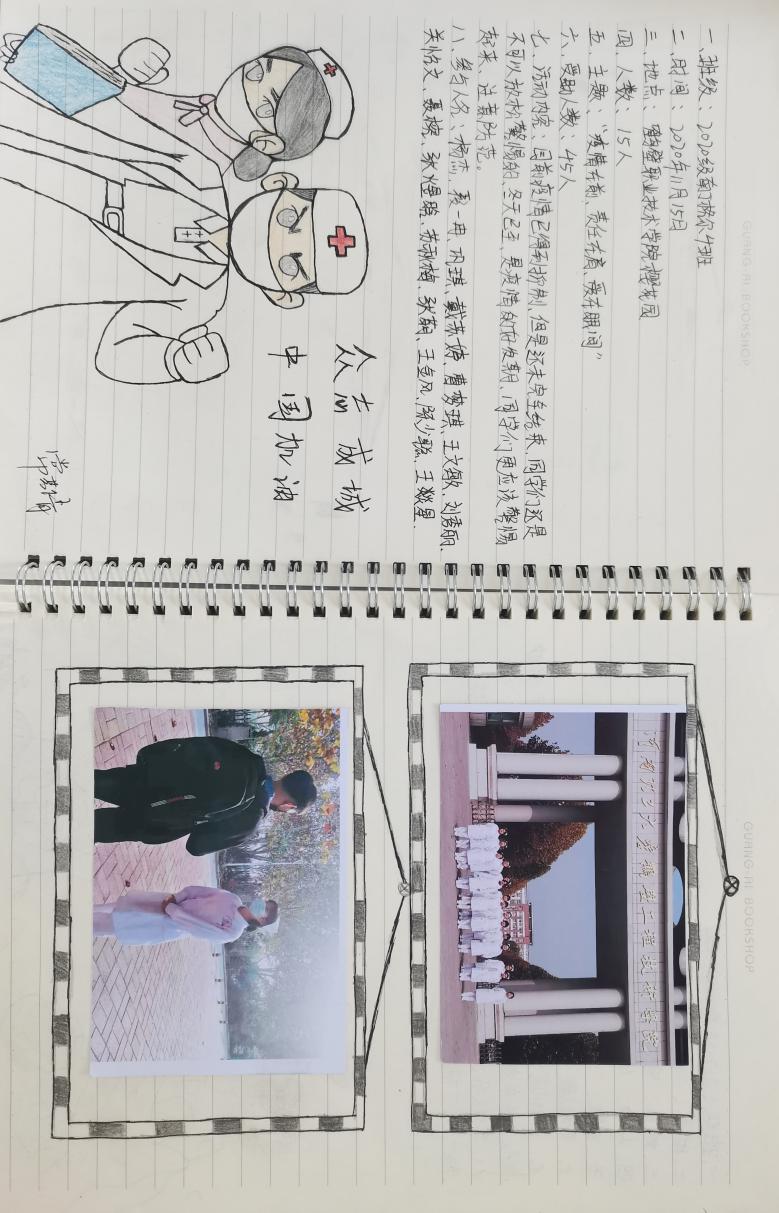 一、班级：2020级南丁格尔4班
二、时间：2020年11月15日
三、地点：鹤壁职业技术学院樱花园
四、人数：15人
五、主题：“疫情在前、责任在肩、爱在眼间”
六、受助人数：45人
七、活动内容：目前疫情已得到抑制，但是还未完全结束，同学们还是
不可以放松警惕的，冬天已至，是疫情的发期，同学们更应该警惕
起来，注意防范。
八、参与人名：杨杰、聂一冉、巩琪、戴苏婷、曹梦琪、王文敏、刘彦丽、
关怡文、聂樱、张璐、苏秋梅、张萌、王立凤、陈少聪、王星.
众志成城
中国加油
GUANG AI BOOKSHOP
GUANG AI BOOKSHOP
河南理工大学鹤壁工程技术学院